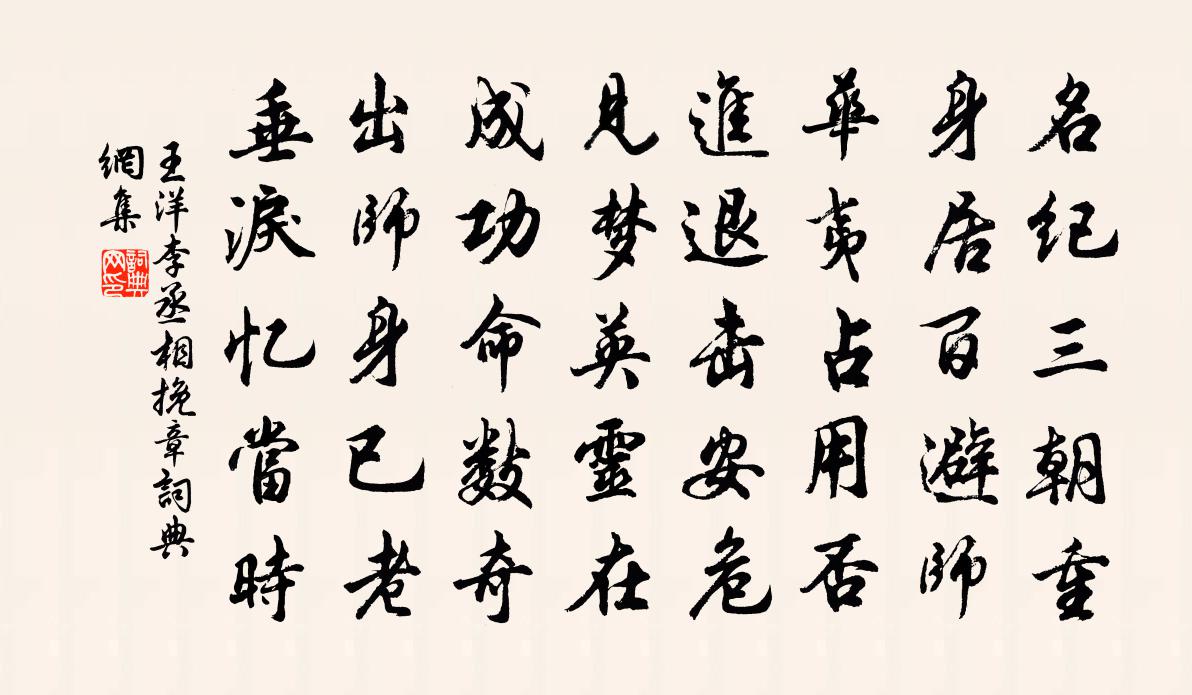 名纪三朝重
身居百避师
华夷占用否
進退击安危
見梦英靈在
成功命数奇
出師身已老
垂淚忆當時
王洋李丞相挽章詞典
網集
詞典网印